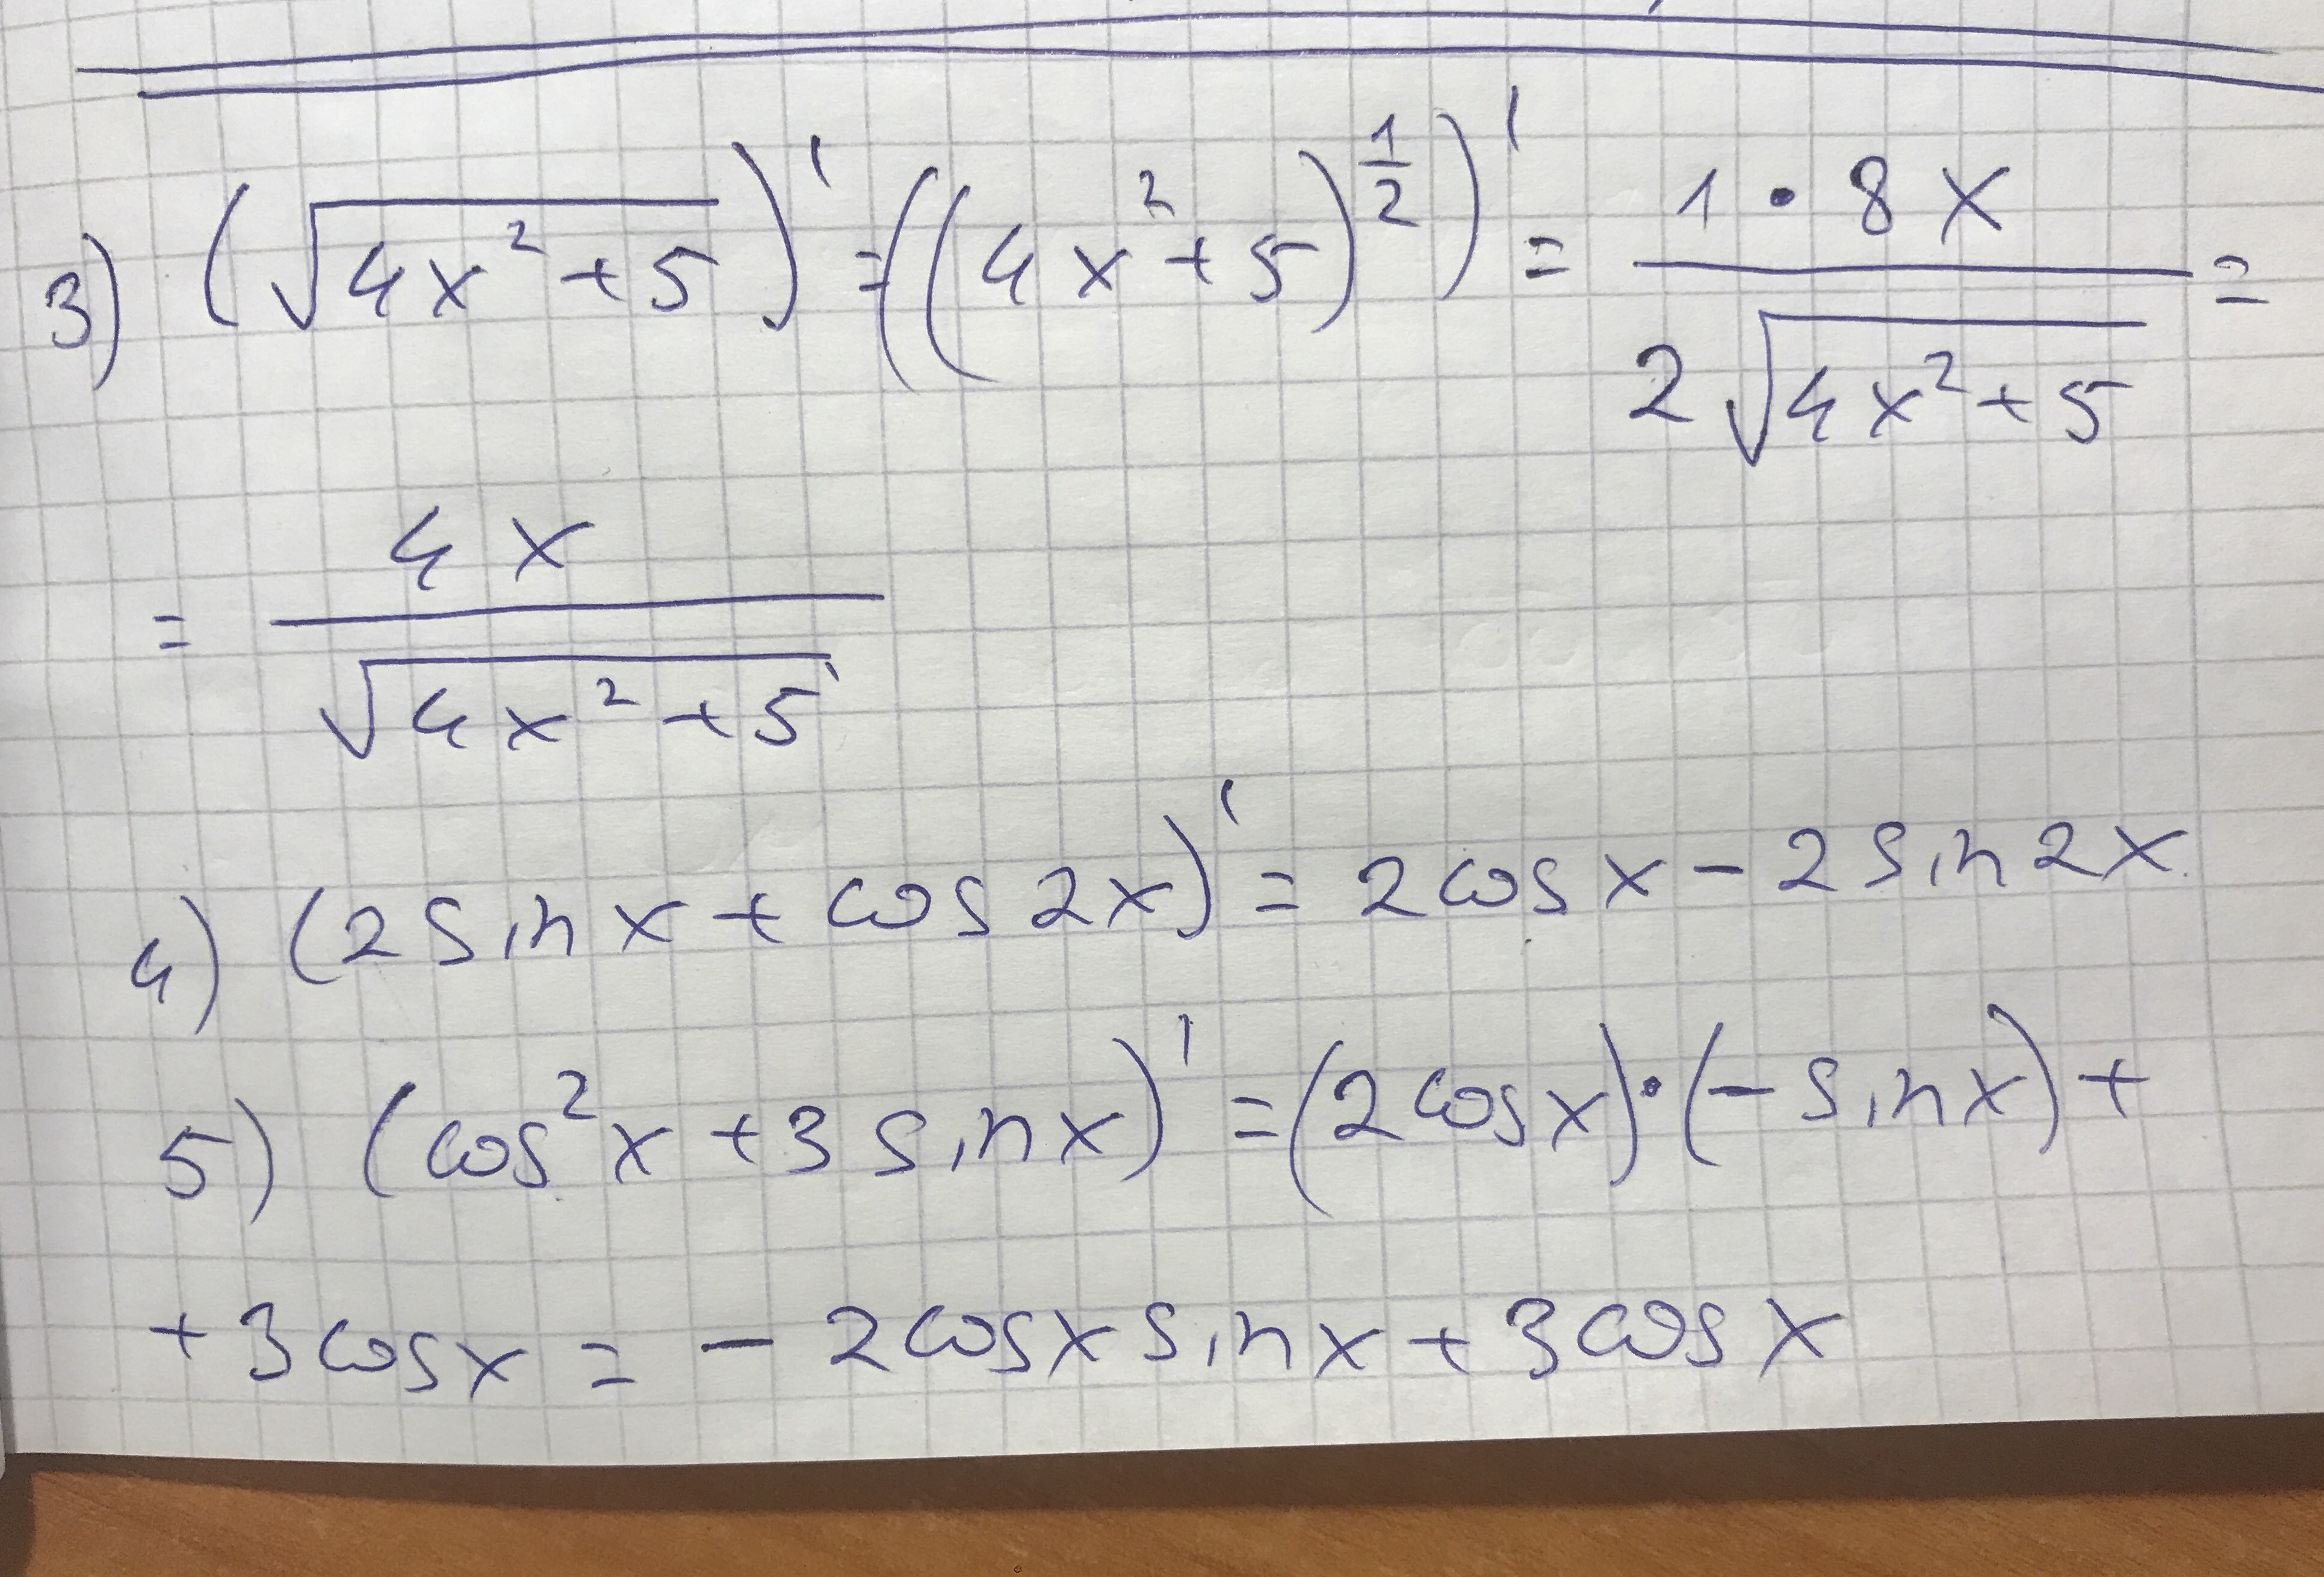 3) (√(4x²+5))' = ((4x²+5)^(1/2))' = (1 · 8x)/(2√(4x²+5)) =
= 4x/√(4x²+5)
4) (2 sin x + cos 2x)' = 2 cos x - 2 sin 2x
5) (cos²x + 3 sin x)' = (2 cos x) · (- sin x) +
+ 3 cos x = - 2 cos x sin x + 3 cos x